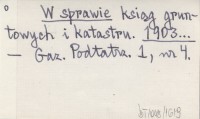 W sprawie ksiąg grun-
towych i katastru. 1903...
— Gaz. Podtatrz. 1, nr 4.